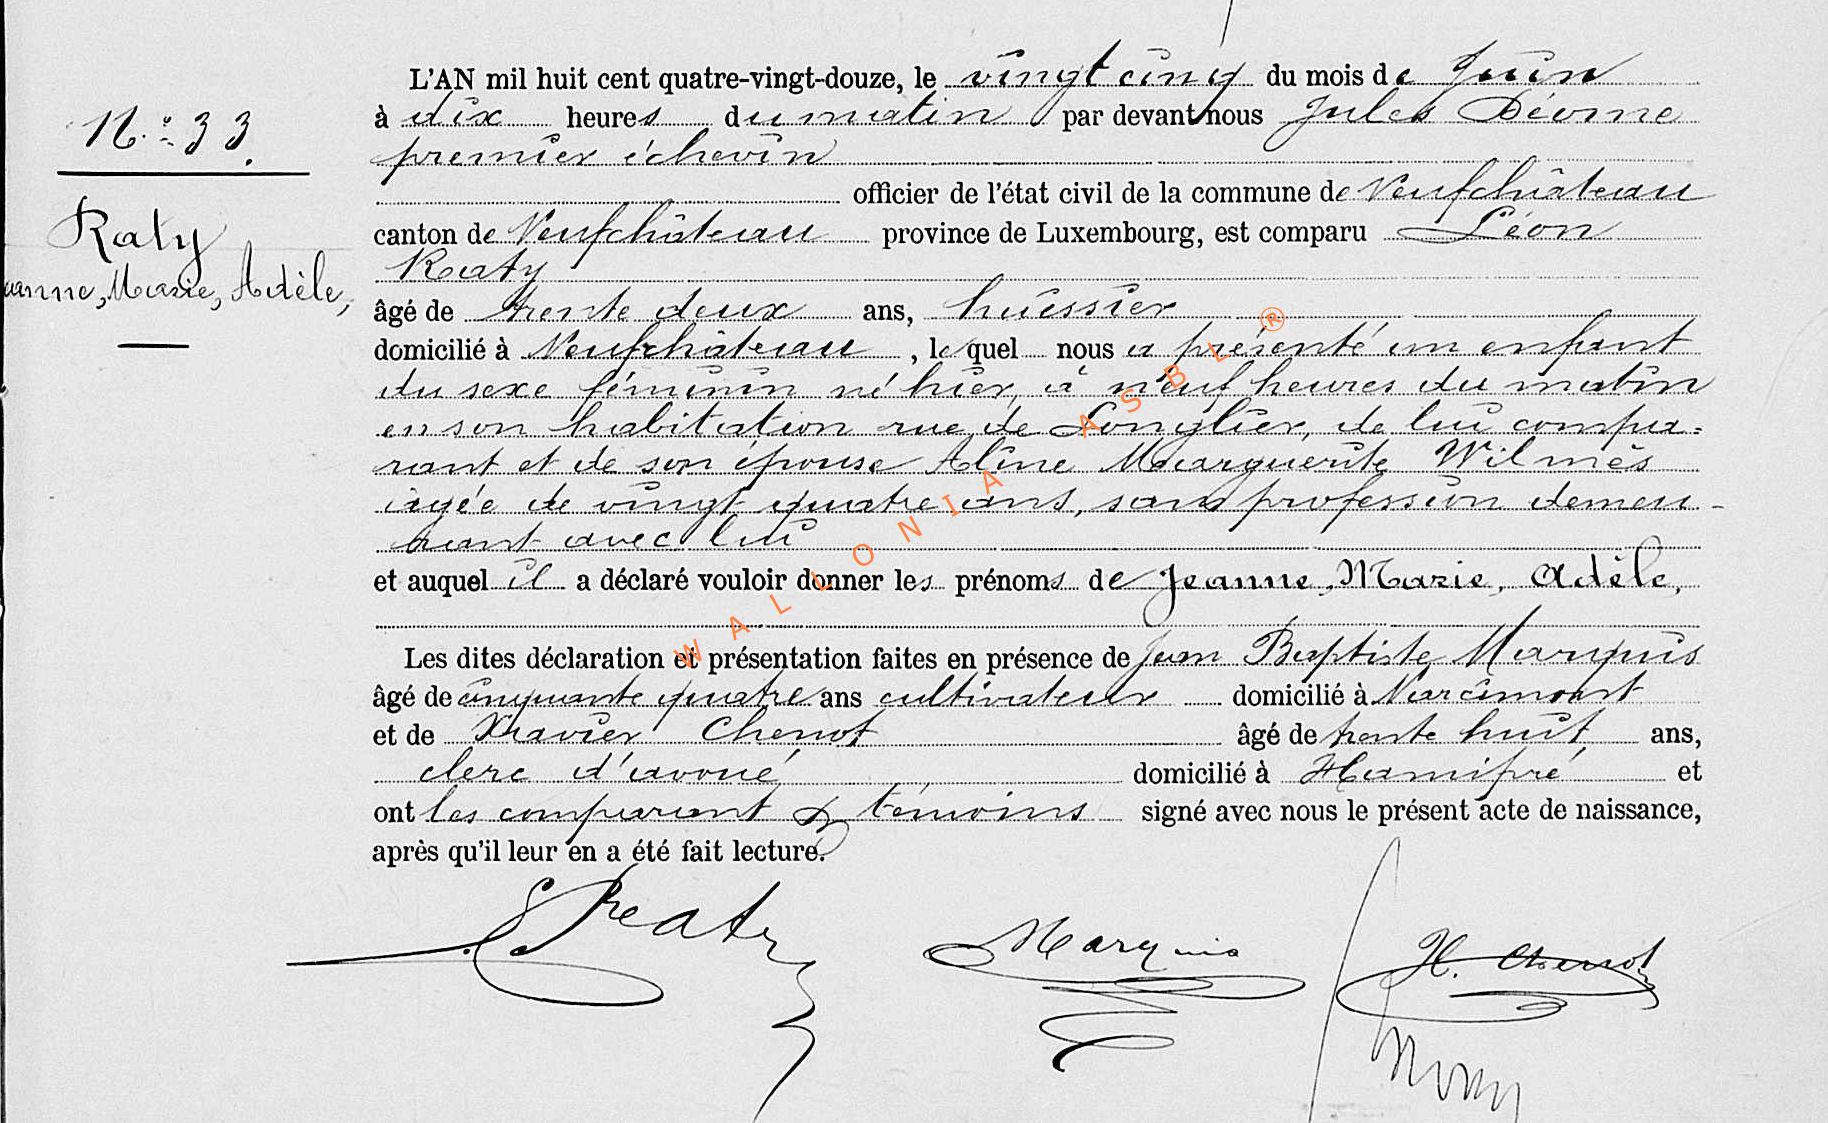 L'AN mil huit cent quatre-vingt-douze, le vingt cinq du mois de Juin
N.º 33.
à dix heures du matin par devant nous Jules
premier échevin
officier de l'état civil de la commune de Neufchâteau
Raty
canton de Neufchâteau province de Luxembourg, est comparu Léon
Raty
Marie, Adèle,
âgé de trente deux ans, huissier
domicilié à Neufchâteau, lequel nous a présenté un enfant
du sexe féminin né hier, à neuf heures du matin
en son habitation rue de Longlier, de lui compa-
rant et de son épouse Aline Marguerite Wilmès
âgée de vingt quatre ans, sans profession demeu-
rant avec lui
et auquel il a déclaré vouloir donner les prénoms de Jeanne, Marie, Adèle,
Les dites déclaration et présentation faites en présence de Jean Baptiste Marquis
âgé de cinquante quatre ans cultivateur domicilié à Narcimont
et de Xavier Chenot âgé de trente huit ans,
clerc d'avoué domicilié à Hamipré et
ont les comparant & témoins signé avec nous le présent acte de naissance,
après qu'il leur en a été fait lecture.
Raty Marquis Chenot
WALLONIA ASBL ®